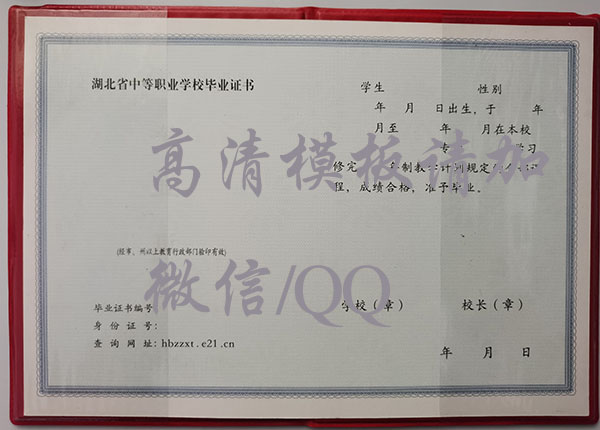 湖北省中等职业学校毕业证书
(经市、州以上教育行政部门验印有效)
毕业证书编号
身份证号:
查询网址:hbzzxt.e21.cn
学生 性别
年 月 日出生,于 年
月至 年 月在本校
专 学习
修完 年制教学计划规定
程,成绩合格,准予毕业。
学校(章) 校长(章)
年 月 日
高清模板请加
微信/QQ